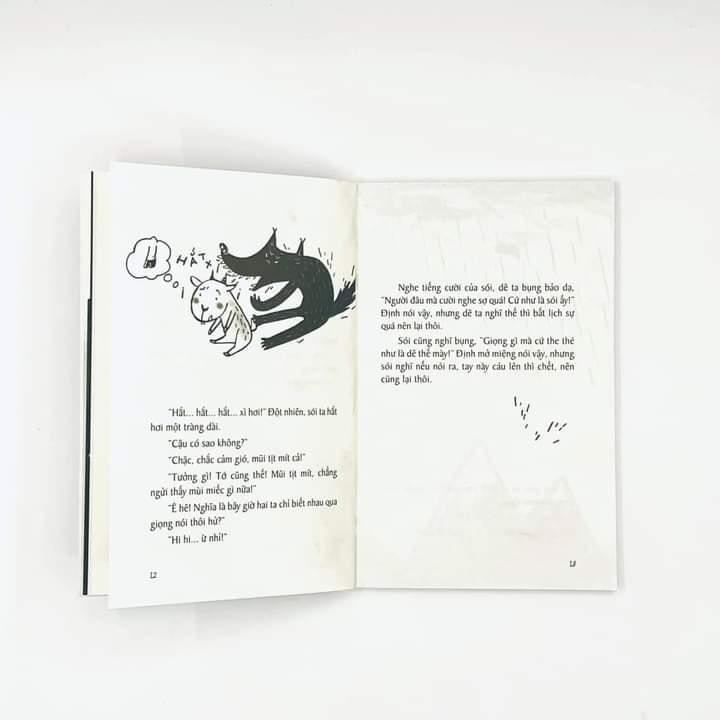 HẮT X
"Hắt... hắt... hắt... xì hơi!" Đột nhiên, sói ta hắt
hơi một tràng dài.
"Cậu có sao không?"
"Chậc, chắc cảm gió, mũi tịt mít cả!"
"Tưởng gì! Tớ cũng thế! Mũi tịt mít, chẳng
ngửi thấy mùi miếc gì nữa!"
"Ê hê! Nghĩa là bây giờ hai ta chỉ biết nhau qua
giọng nói thôi hử?"
"Hi hi... ừ nhỉ!"
12
Nghe tiếng cười của sói, dê ta bụng bảo dạ,
"Người đâu mà cười nghe sợ quá! Cứ như là sói ấy!"
Định nói vậy, nhưng dê ta nghĩ thế thì bất lịch sự
quá nên lại thôi.
Sói cũng nghĩ bụng, "Giọng gì mà cứ the thé
như là dê thế mày!" Định mở miệng nói vậy, nhưng
sói nghĩ nếu nói ra, tay này cáu lên thì chết, nên
cũng lại thôi.
13